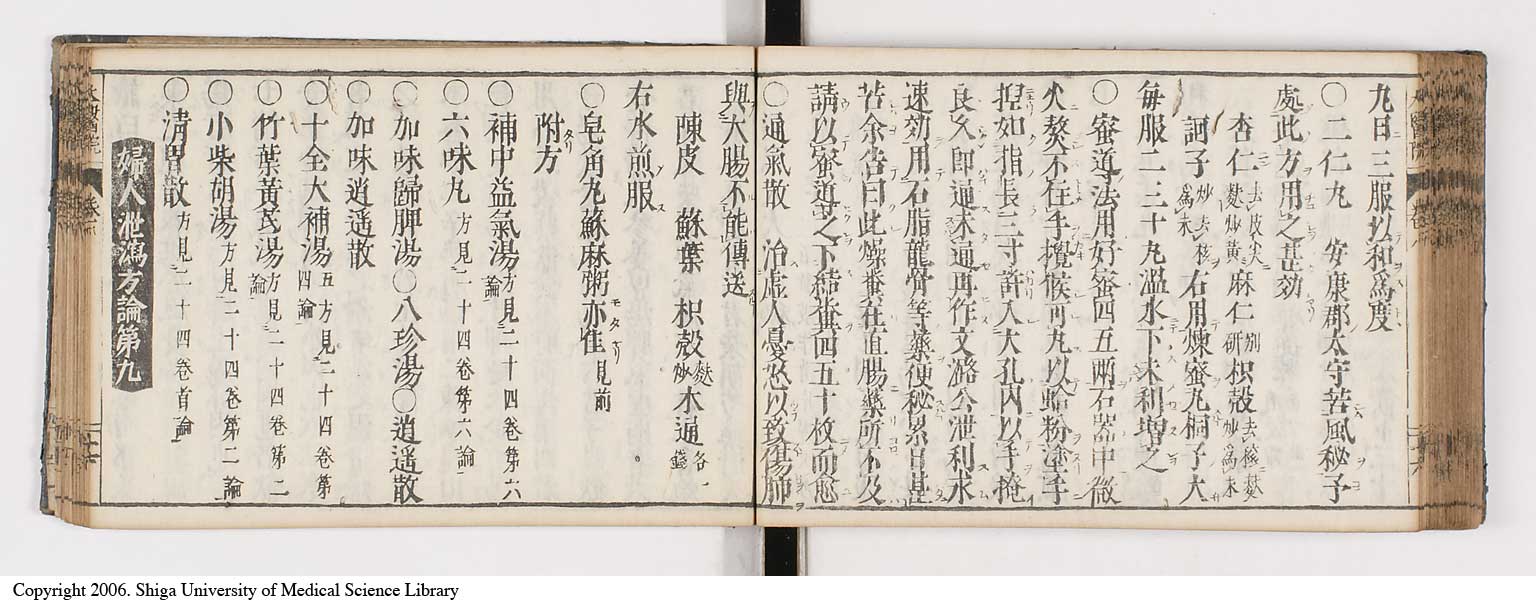 丸日三服以和爲度
〇二仁丸 安康郡太守苦風秘予
處此方用之甚効
杏仁去皮尖麩炒黃麻仁別研枳殼去穰麩炒爲末
訶子炒去核爲末右用煉蜜丸桐子大
每服二三十丸溫水下未利増之
〇蜜導法用好蜜四五兩石器中微
火熬不住手攪候可丸以蛤粉塗手
捏如指長三寸許入大孔內以手掩
良久即通未通再作文潞公泄利求
速効用石脂龍骨等藥便秘累日甚
苦余告曰此燥糞在直腸藥所不及
請以蜜導之下結糞四五十枚而愈
〇通氣散 治虛人憂怒以致傷肺
與大腸不能傳送
陳皮 蘇葉 枳殼麩炒木通各一錢
右水煎服
〇皂角丸蘇麻粥亦佳見前
附方
〇補中益氣湯方見二十四卷第六論
〇六味丸方見二十四卷第六論
〇加味歸脾湯〇八珍湯〇逍遥散
〇加味逍遥散
〇十全大補湯五方見二十四卷第四論
〇竹葉黃芪湯方見二十四卷第二論
〇小柴胡湯方見二十四卷第二論
〇清胃散方見二十四卷首論
婦人泄瀉方論第九
Copyright 2006. Shiga University of Medical Science Library